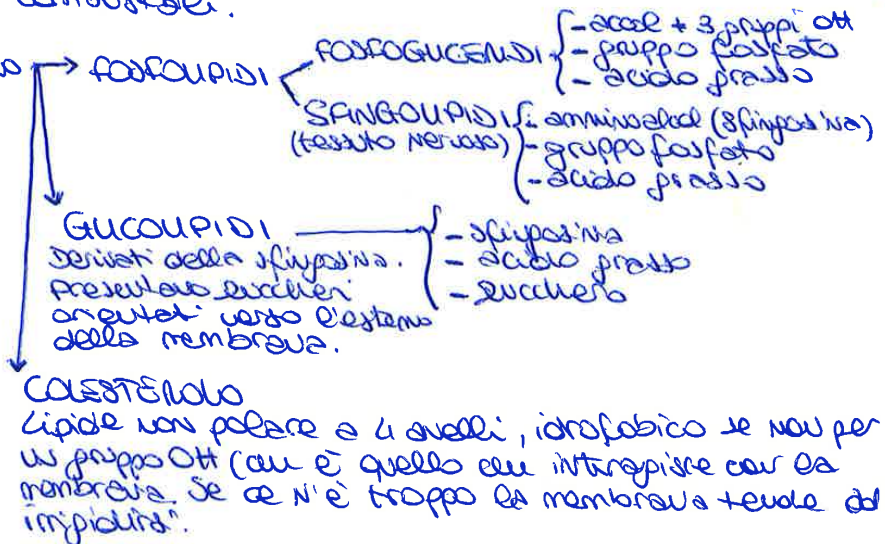 → FOSFOLIPIDI
FOSFOGLICERIDI
- alcol + 3 gruppi OH
- gruppo fosfato
- acido grasso
SFINGOLIPIDI
(tessuto nervoso)
- amminoalcol (sfingosina)
- gruppo fosfato
- acido grasso
GLICOLIPIDI
Derivati della sfingosina.
Presentano zuccheri
orientati verso l'esterno
della membrana.
- sfingosina
- acido grasso
- zucchero
COLESTEROLO
Lipide non polare a 4 anelli, idrofobico se non per
un gruppo OH (che è quello che interagisce con la
membrana. Se ce n'è troppo la membrana tende ad
irrigidirsi".